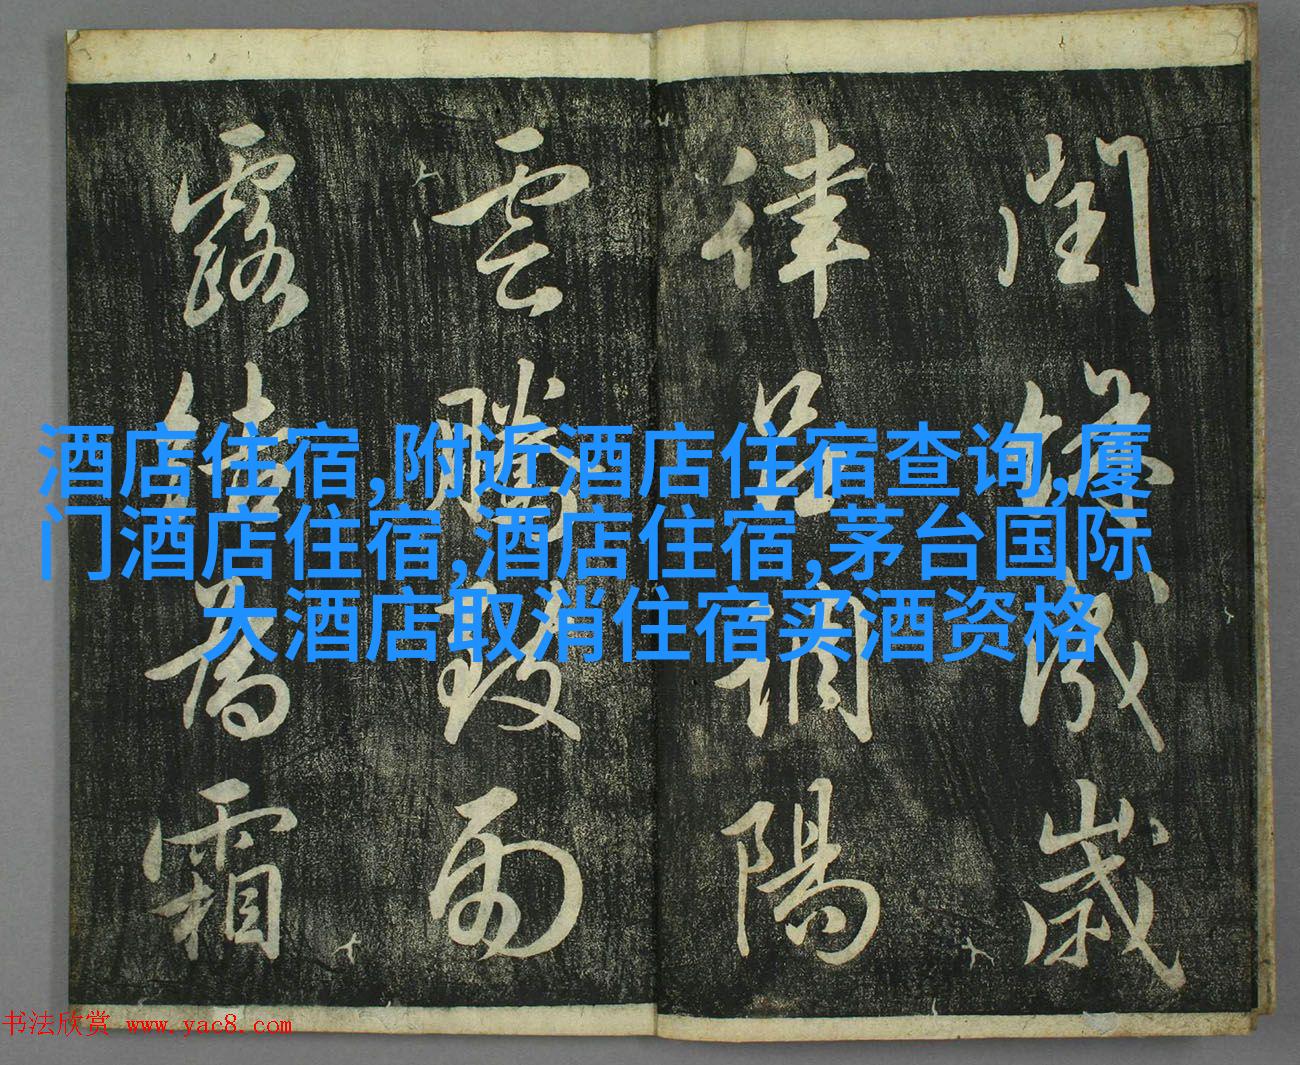 閏餘成歲
律呂調陽
雲騰致雨
露結為霜
酒店住宿,附近酒店住宿查询,厦
门酒店住宿,酒店住宿,茅台国际
大酒店取消住宿买酒资格
书法欣赏 www.yac8.com